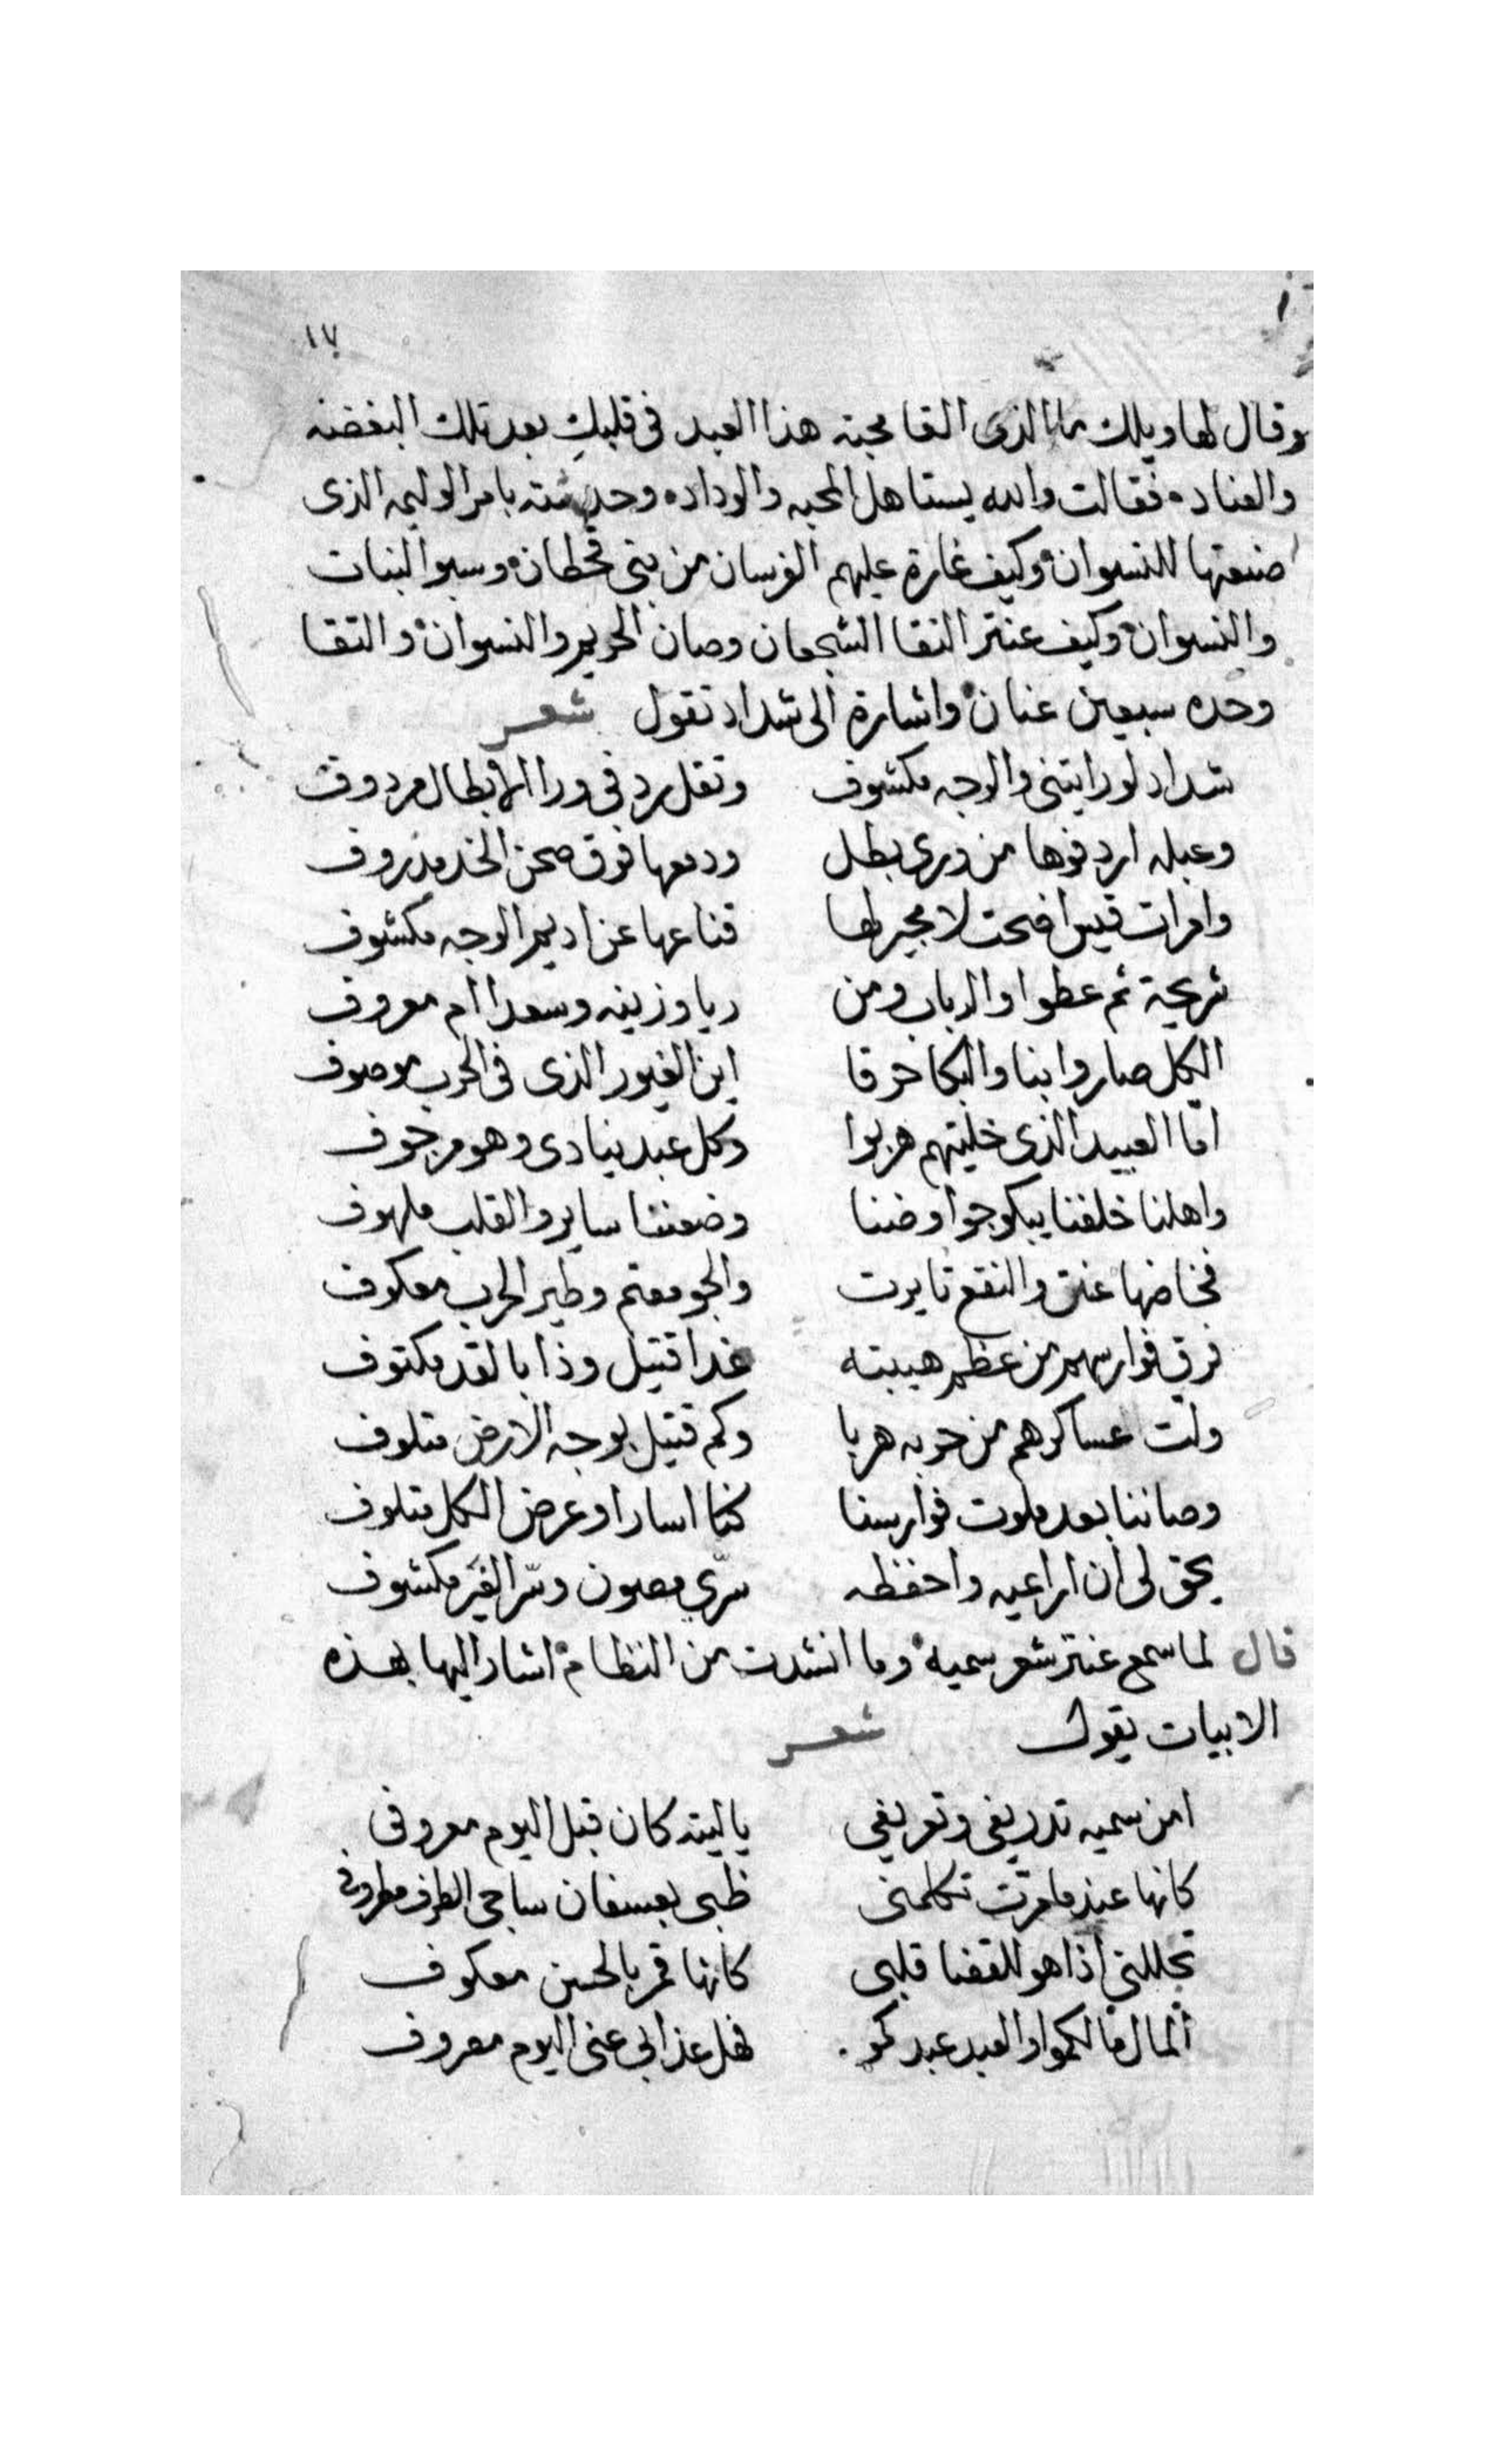 ١٧
وقال لها ويلك ما الذى القا محبة هذا العبد فى قلبكِ بعد تلك البغضه
والعناده فقالت والله يستاهل المحبه والوداده وحدثته بامر الوليمه الذى
صنعتها للنسوان وكيف غارة عليهم الفرسان من بنى قحطان وسبو البنات
والنسوان وكيف عنتر التقا الشجعان وصان الحريم والنسوان والتقا
وحده سبعين عنان واشارة الى شداد تقول شعر
شداد لو رايتنى والوجه مكشوف وتقل ردفى ورا الابطال مردوف
وعبله اردفوها من ورى بطل ودمعها فوق صحن الخد مذروف
وامرات قيس اضحت لا مجير لها قناعها عن اديم الوجه مكشوف
شريحة ثم عطوا والرباب ومن ريا وزينه وسعدا ام معروف
الكل صاروا بنا والبكا حرقا اين الغيور الذى فى الحرب موصوف
امّا العبيد الذى خليتهم هربوا وكل عبد ينادى وهو مرجوف
واهلنا خلفنا يبكو جوا وضنا وضعننا ساير والقلب ملهوف
فخاضها عنتر والنقع ثايرت والجو معتم وطير الحرب معكوف
فرق فوارسهم من عظم هيبته غدا قتيل وذا بالقد مكتوف
ولّت عساكرهم من حربه هربا وكم قتيل بوجه الارض متلوف
وصاننا بعد ملوت فوارسنا كنا اسارا وعرض الكل متلوف
يحق لى ان اراعيه واحفظه سرّي مصون وسرّ الغير مكشوف
قال لما سمع عنتر شعر سميه وما انشدت من النظام اشار اليها بهذه
الابيات يقول شعر
امن سميه تدريفى وتعريفى ياليته كان قبل اليوم معروفى
كانها عند ما مرّت تكلمنى ظبى بعسفان ساجى الطرف مطروف
تجللنى اذا هو للقضا قلبى كانها قمر بالحسن معكوف
المال مالكموا والعبد عبدكمو فهل عذابى عنى اليوم معروف